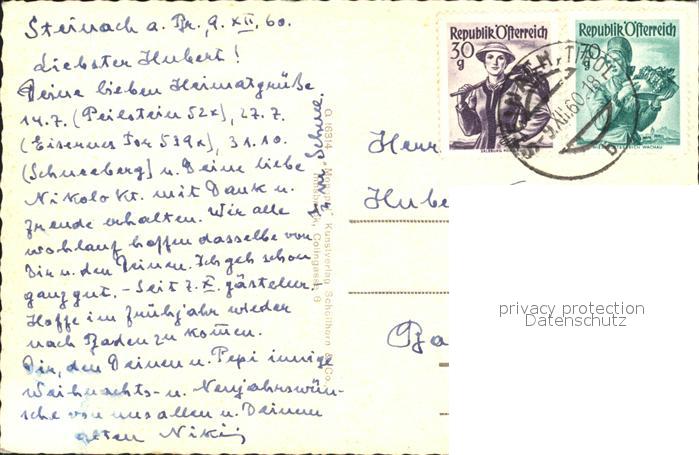 Steinach a. Br., 9. XII. 60.
Liebster Hubert!
Deine lieben Heimatgrüße
14.7. (Peilstein 52x), 27.7.
(Eisernes Tor 539x), 31.10.
(Schneeberg) u. Deine liebe
Nikolo Kt. mit Dank u.
Freude erhalten. Wir alle
wohlauf hoffen dasselbe von
Dir u. den Deinen. Ich geh schon
ganz gut. - Seit 7. X. gästeleer,
Hoffe im Frühjahr wieder
nach Baden zu kom̅en.
Dir, den Deinen u. Pepi innige
Weihnachts- u. Neujahrswün-
sche von uns allen u. Deinem
alten Niki
Schnee.
Q 16314 "Monopol" Kunstverlag Schöllhorn & Co.,
Innsbruck, Colingasse 6
Republik Österreich
30 g
SALZBURG
Republik Österreich
70 g
WACHAU
STEINACH, TIROL
9.XII.60.18
b
Herr
Hube
Ba
privacy protection
Datenschutz